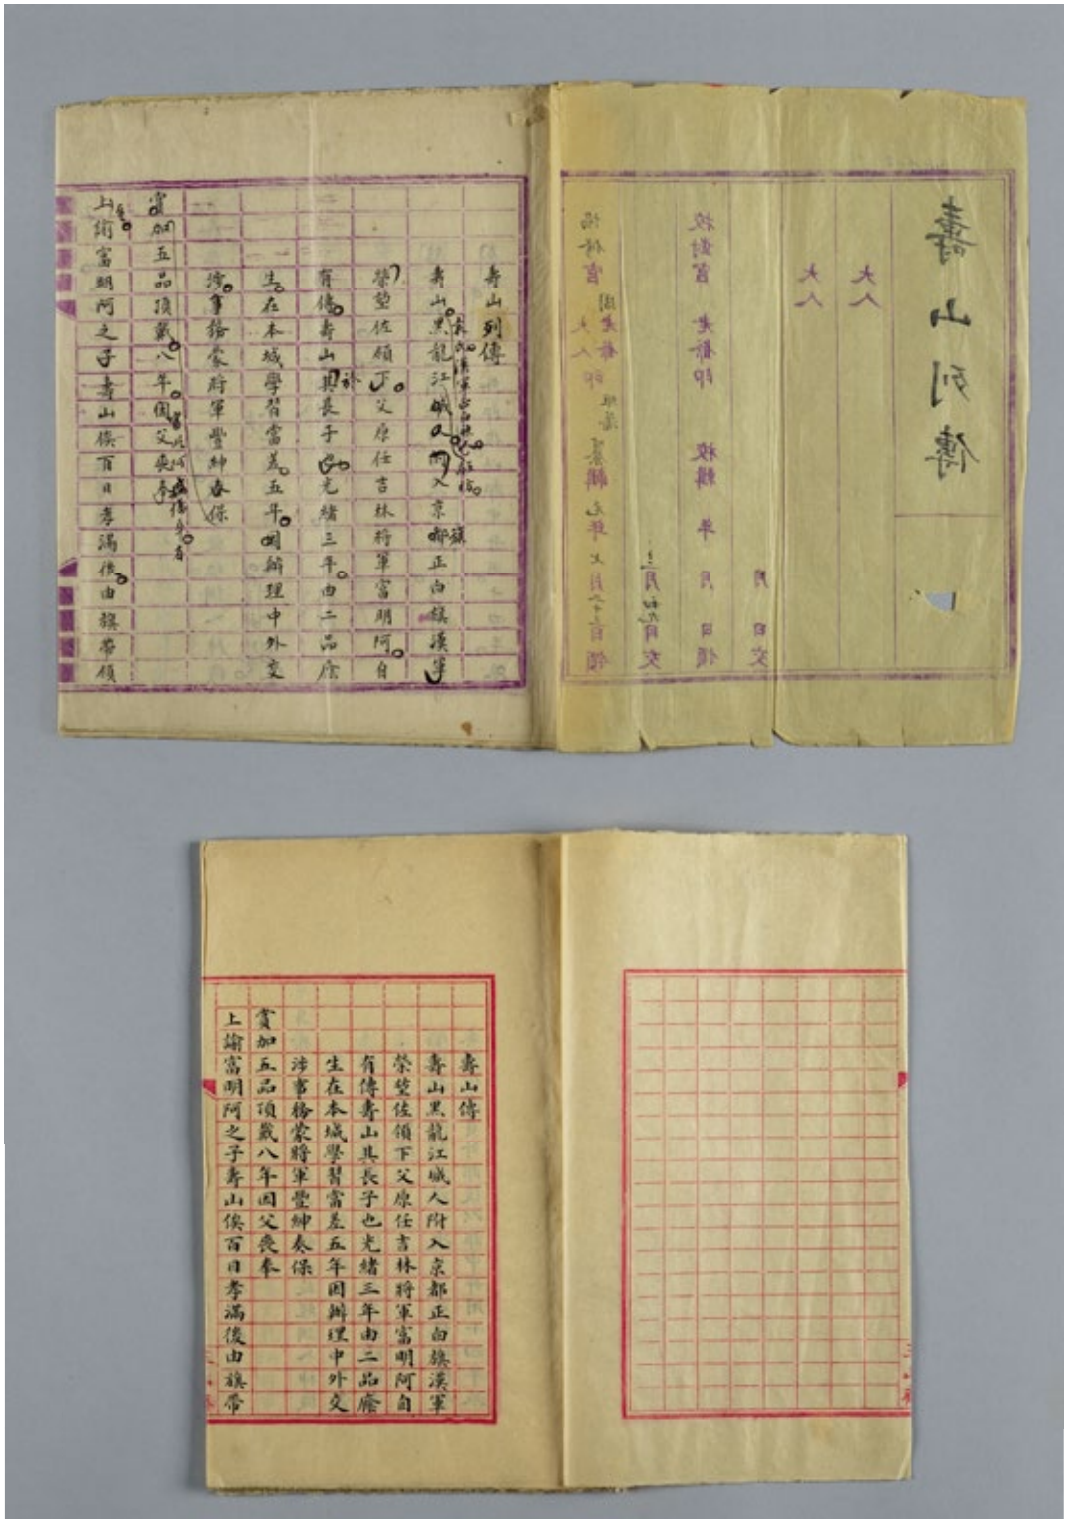 壽山列傳
大人
大人
月 日交
校對官 老爺印 校輯 年 月 日領
三月初九日交
協修官 大人 周老爺印 纂輯 元年七月二十三日領
壽山列傳
壽山黑龍江城人附入京都正白旗漢軍
旗
榮堃佐領下父原任吉林將軍富明阿自
有傳壽山其長子也光緒三年由二品廕
於
生在本城學習當差五年因辦理中外交
涉事務蒙將軍豐紳奏保
賞加五品頂戴八年因父喪奉
上諭富明阿之子壽山俟百日孝滿後由旗帶領
壽山傳
壽山黑龍江城人附入京都正白旗漢軍
榮堃佐領下父原任吉林將軍富明阿自
有傳壽山其長子也光緒三年由二品廕
生在本城學習當差五年因辦理中外交
涉事務蒙將軍豐紳奏保
賞加五品頂戴八年因父喪奉
上諭富明阿之子壽山俟百日孝滿後由旗帶